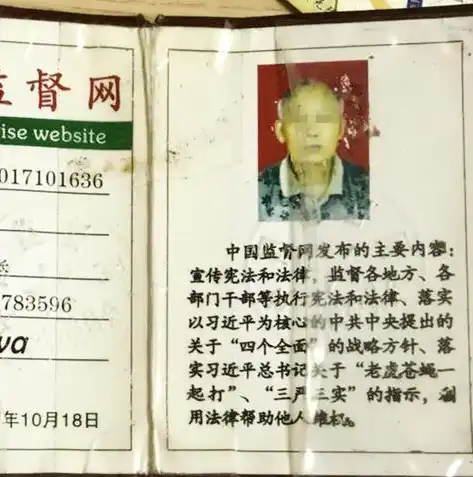 监督网
ise website
017101636
783596
va
年10月18日
中国监督网发布的主要内容：
宣传宪法和法律，监督各地方、各
部门干部等执行宪法和法律、落实
以习近平为核心的中共中央提出的
关于“四个全面”的战略方针、落
实习近平总书记关于“老虎苍蝇一
起打”、“三严三实”的指示，利
用法律帮助他人维权。